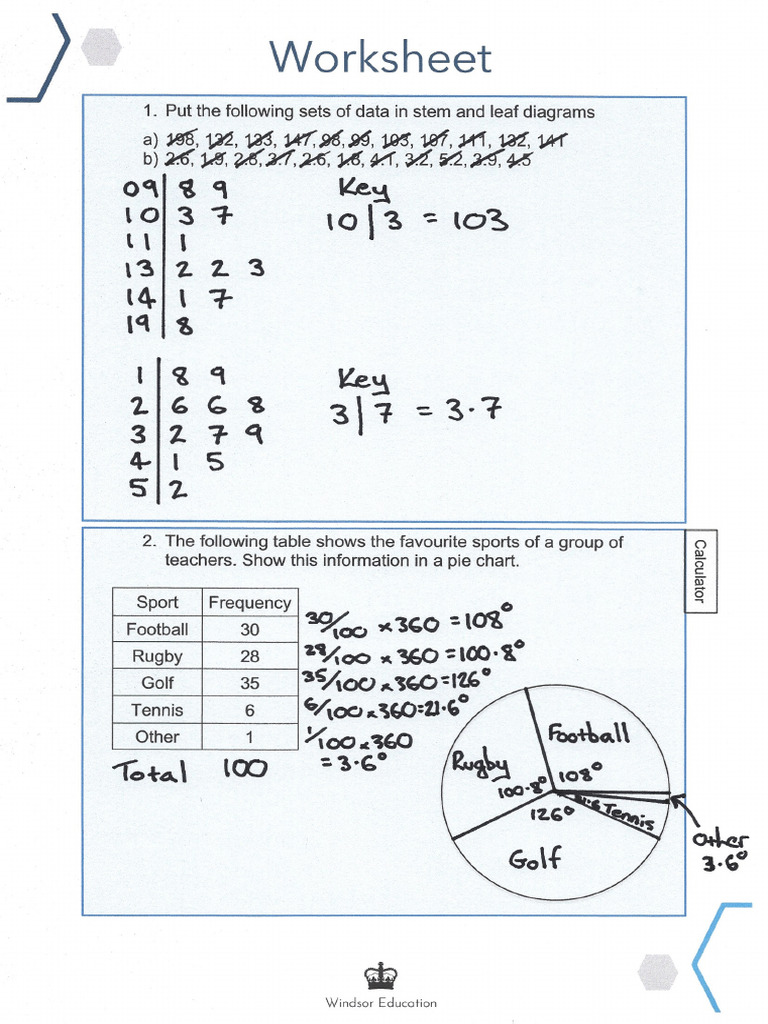 Worksheet
1. Put the following sets of data in stem and leaf diagrams
a) 198, 132, 133, 147, 98, 99, 103, 107, 111, 132, 141
b) 2.6, 1.9, 2.8, 3.7, 2.6, 1.8, 4.1, 3.2, 5.2, 3.9, 4.5
09 | 8 9
10 | 3 7
11 | 1
13 | 2 2 3
14 | 1 7
19 | 8
Key
10 | 3 = 103
1 | 8 9
2 | 6 6 8
3 | 2 7 9
4 | 1 5
5 | 2
Key
3 | 7 = 3.7
2. The following table shows the favourite sports of a group of
teachers. Show this information in a pie chart.
Calculator
Sport Frequency
Football 30
Rugby 28
Golf 35
Tennis 6
Other 1
Total 100
30/100 × 360 = 108°
28/100 × 360 = 100.8°
35/100 × 360 = 126°
6/100 × 360 = 21.6°
1/100 × 360
= 3.6°
Football
108°
Rugby
100.8°
126°
Golf
21.6 Tennis
Other
3.6°
Windsor Education